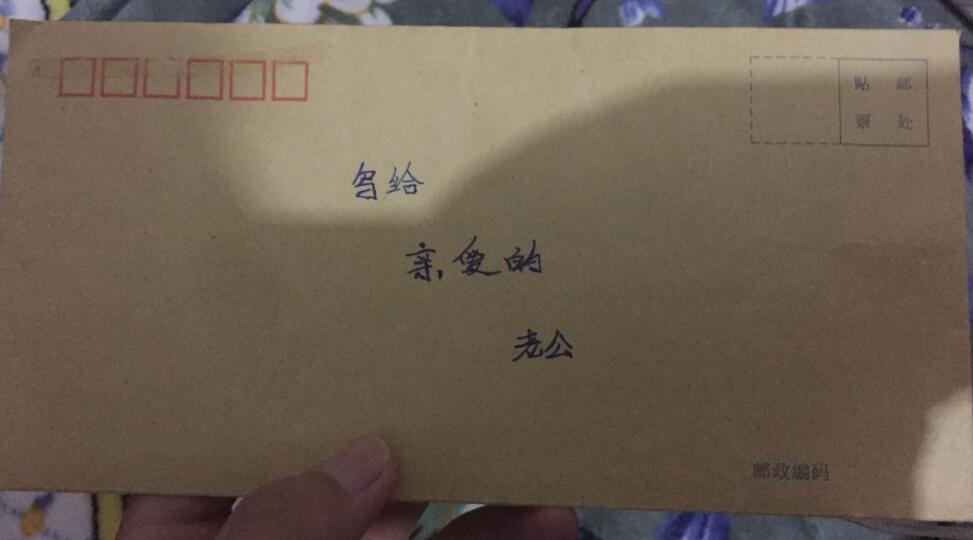 贴 邮
票 处
写给
亲爱的
老公
邮政编码